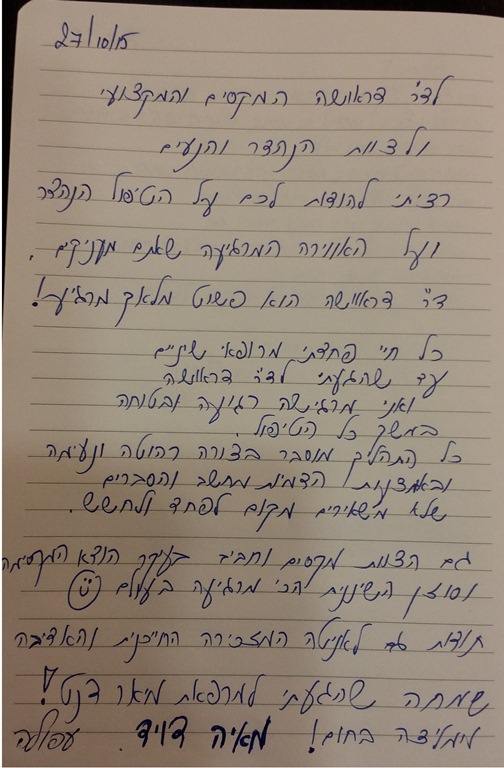 27/10/15
לד״ר דראושה המקסים והמקצועי
ולצוות הנהדר והנעים
רציתי להודות לכם על הטיפול הנהדר
ועל האווירה המרגיעה שאתם מעניקים.
ד״ר דראוושה הוא פשוט מלאך מרגיע!
כל חיי פחדתי מרופאי שיניים
עד שהגעתי לד״ר דראושה
ואני מרגישה רגועה ובטוחה
במשך כל הטיפול.
כל התהליך מוסבר בצורה רהוטה ונעימה
ובאמצעות הדמיות מחשב והסברים
שלא משאירים מקום לפחד ולחשש.
גם הצוות מקסים וחביב בעיקר הודא המקסימה
וסוזן השיננית הכי מרגיעה בעולם
תודות גם לאניטה המזכירה החייכנית והאדיבה
שמחה שהגעתי למרפאת מיאר דנט!
ממליצה בחום! מאיה דויד. עפולה